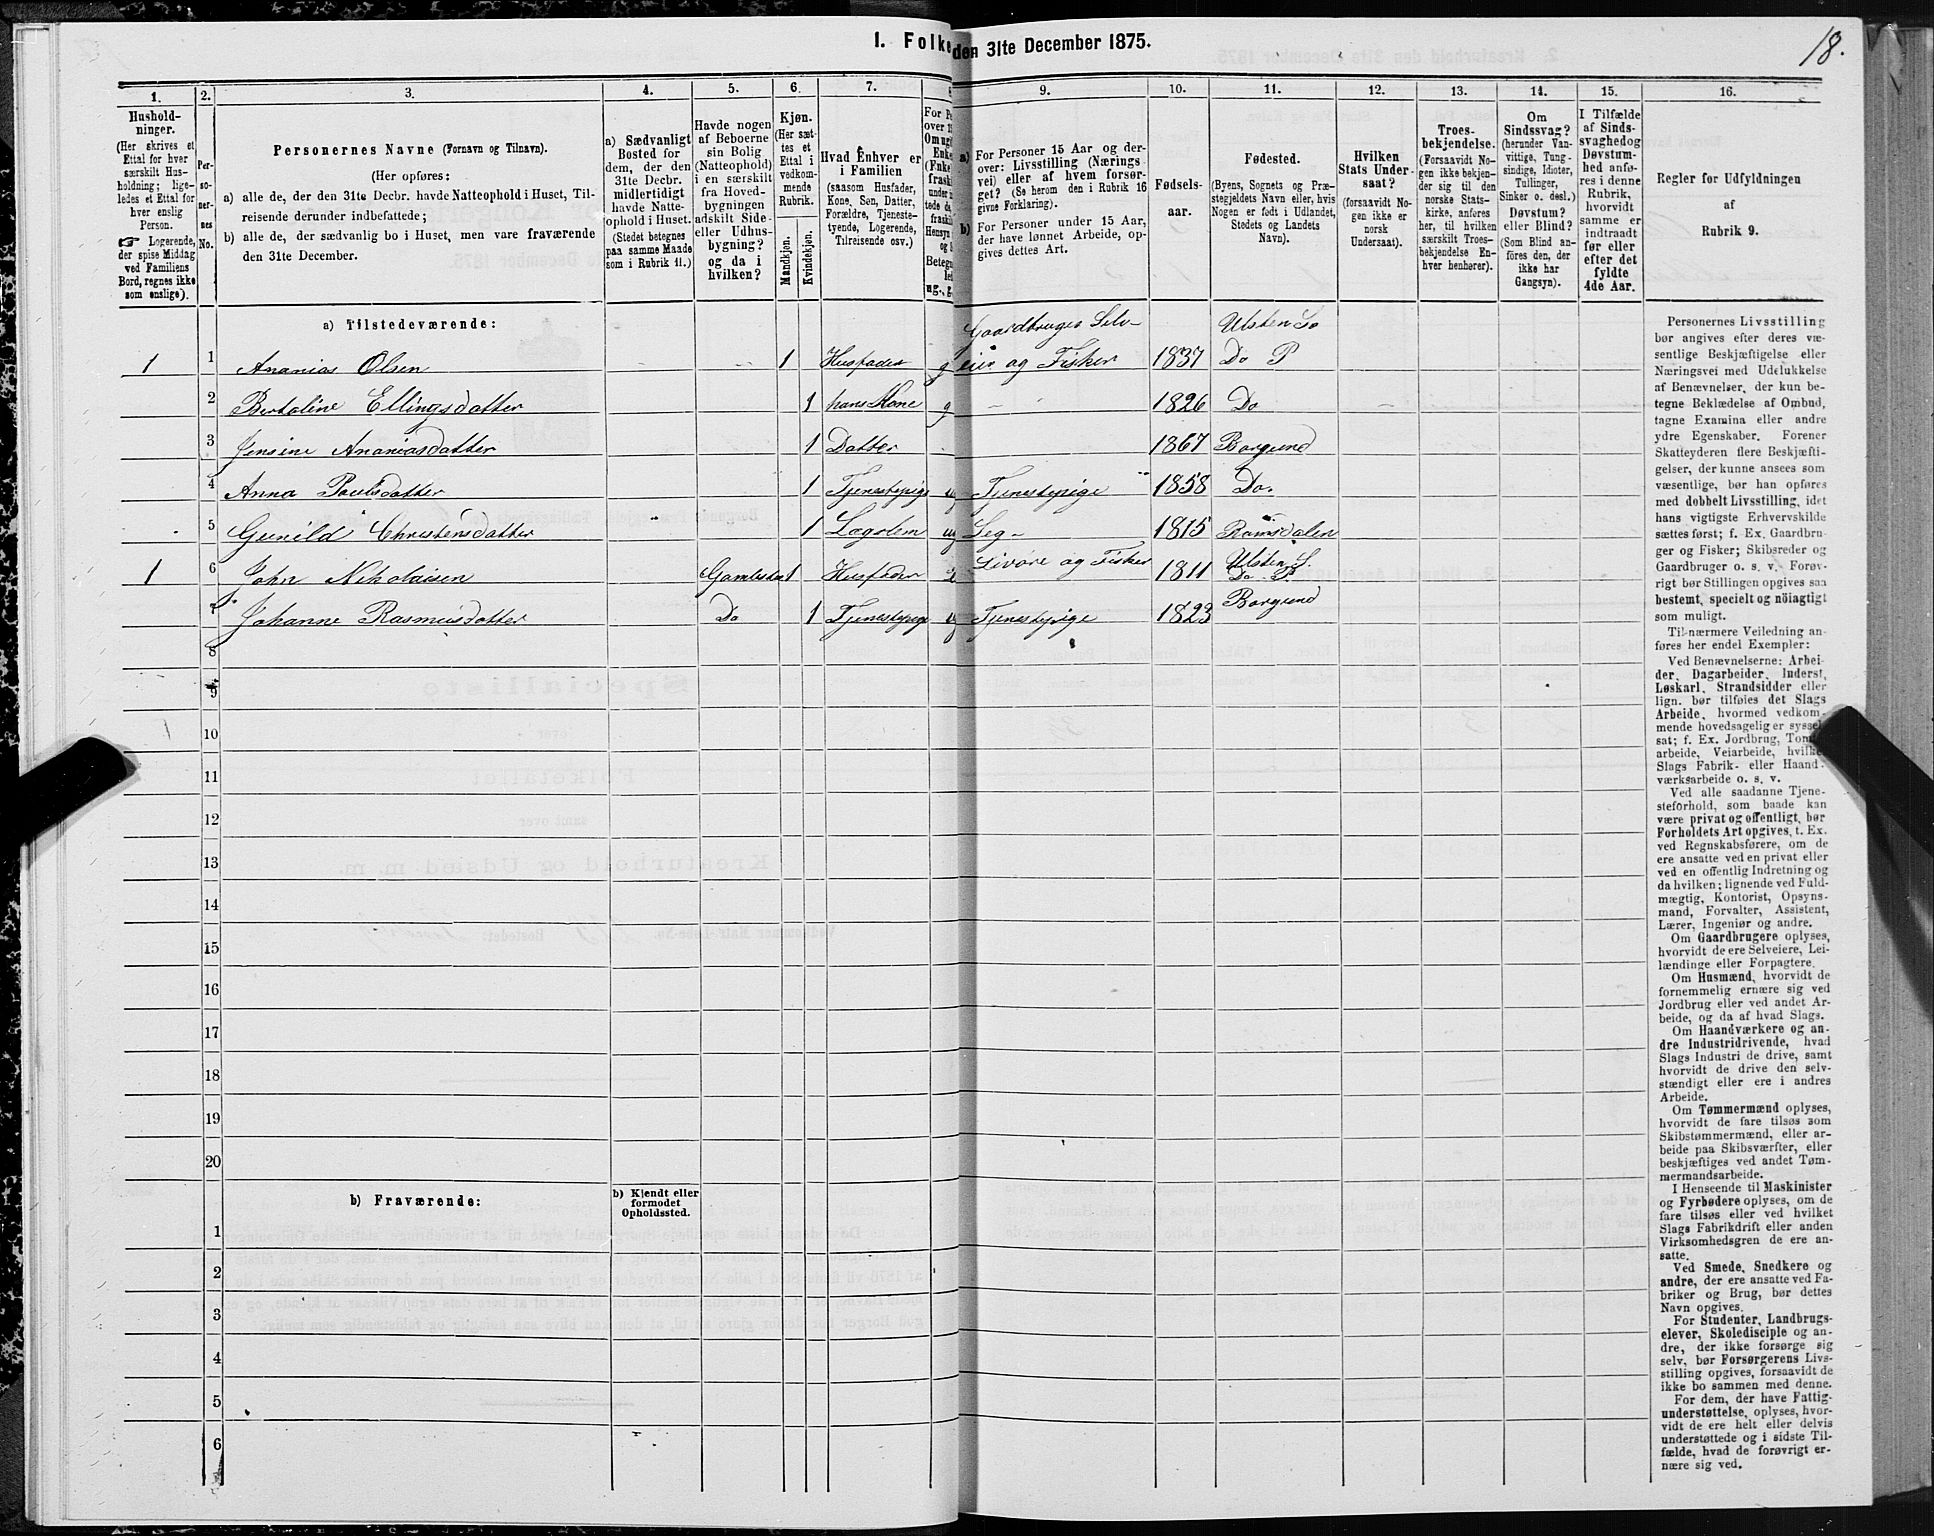 18.
1. Folke den 31te December 1875.
1. 2. 3. 4. 5. 6. 7. 8 9. 10. 11. 12. 13. 14. 15. 16.
Hushold-
ninger.
(Her skrives et
Ettal for hver
særskilt Hus-
holdning; lige-
ledes et Ettal for
hver enslig
Person.
Logerende,
der spise Middag
ved Familiens
Bord, regnes ikke
som enslige).
Per-
so-
ner-
nes
No.
Personernes Navne (Fornavn og Tilnavn).
(Her opføres:
a) alle de, der den 31te Decbr. havde Natteophold i Huset, Til-
reisende derunder indbefattede;
b) alle de, der sædvanlig bo i Huset, men vare fraværende
den 31te December.
a) Sædvanligt
Bosted for
dem, der den
31te Decbr.
midlertidigt
havde Natte-
ophold i Huset.
(Stedet betegnes
paa samme Maade
som i Rubrik 11.)
Havde nogen
af Beboerne
sin Bolig
(Natteophold)
i en særskilt
fra Hoved-
bygningen
adskilt Side-
eller Udhus-
bygning?
og da i
hvilken?
Kjøn.
(Her sæt-
tes et
Ettal i
vedkom-
mende
Rubrik.
Mandkjøn.
Kvindekjøn.
Hvad Enhver er
i Familien
(saasom Husfader,
Kone, Søn, Datter,
Forældre, Tjeneste-
tyende, Logerende,
Tilreisende osv.)
For P
over 1
Om ug
Enke
(Enke
frask
under
tede d
frask
Hensyn
og
Betegn
ug., g.
a) For Personer 15 Aar og der-
over: Livsstilling (Nærings
vei) eller af hvem forsør-
get? (Se herom den i Rubrik 16
givne Forklaring).
b) For Personer under 15 Aar,
der have lønnet Arbeide, op-
gives dettes Art.
Fødsels-
aar.
Fødested.
(Byens, Sognets og Præ-
stegjeldets Navn eller, hvis
Nogen er født i Udlandet,
Stedets og Landets
Navn).
Hvilken
Stats Under-
saat?
(forsaavidt No-
gen ikke er
norsk
Undersaat).
Troes-
bekjendelse.
(Forsaavidt No-
gen ikke bekjen-
der sig til den
norske Stats-
kirke, anføres
her, til hvilken
særskilt Troes-
bekjendelse En-
hver henhører).
Om
Sindssvag?
(herunder Van-
vittige, Tung-
sindige, Idioter,
Tullinger,
Sinker o. desl.)
Døvstum?
eller Blind?
(Som Blind an-
føres den, der
ikke har
Gangsyn).
I Tilfælde
af Sinds-
svaghedog
Døvstum-
hed anfø-
res i denne
Rubrik,
hvorvidt
samme er
indtraadt
før eller
efter det
fyldte
4de Aar.
Regler for Udfyldningen
af
Rubrik 9.
a) Tilstedeværende:
Gaardbruger Selv- Ulsten So
1 1 Ananias Olsen 1 Husfader g eier og Fisker 1837 Do P
2 Bertoline Ellingsdatter 1 hans Kone g 1826 Do
3 Jensine Ananiasdatter 1 Datter 1867 Borgund
4 Anna Poulsdatter 1 Tjenestepige ug Tjenestepige 1858 Do.
5 Gunild Christensdatter 1 Lægslem ug Leg- 1815 Romsdalen
1 6 John Nikolaisen 1 Husfader Livøre og Fisker 1811 Ulsten S.
Do P
7 Johanne Rasmusdatter Do 1 Tjenestepige ug Tjenestepige 1823 Borgund
8
9
10
11
12
13
14
15
16
17
18
19
20
b) Fraværende:
b) Kjendt eller
formodet
Opholdssted.
1
2
3
4
5
6
Personernes Livsstilling
bør angives efter deres væ-
sentlige Beskjæftigelse eller
Næringsvei med Udelukkelse
af Benævnelser, der kun be-
tegne Beklædelse af Ombud,
tagne Examina eller andre
ydre Egenskaber. Forener
Skatteyderen flere Beskjæfti-
gelser, der kunne ansees som
væsentlige, bør han opføres
med dobbelt Livsstilling, idet
hans vigtigste Erhvervskilde
sættes først; f. Ex. Gaardbru-
ger og Fisker; Skibsreder og
Gaardbruger o. s. v. Forøv-
rigt bør Stillingen opgives saa
bestemt, specielt og nöiagtigt
som muligt.
Til nærmere Veiledning an-
føres her endel Exempler:
Ved Benævnelserne: Arbei-
der, Dagarbeider, Inderst,
Løskarl, Strandsidder eller
lign. bør tilføies det Slags
Arbeide, hvormed vedkom-
mende hovedsagelig er syssel-
sat; f. Ex. Jordbrug, Tom
arbeide, Veiarbeide, hvilke
Slags Fabrik- eller Haand-
værksarbeide o. s. v.
Ved alle saadanne Tjene-
steforhold, som baade kan
være privat og offentligt, bør
Forholdets Art opgives, t. Ex.
ved Regnskabsførere, om de
ere ansatte ved en privat eller
ved en offentlig Indretning og
da hvilken; lignende ved Fuld-
mægtig, Kontorist, Opsyns-
mand, Forvalter, Assistent,
Lærer, Ingeniør og andre.
Om Gaardbrugere oplyses,
hvorvidt de ere Selveiere, Lei-
lændinge eller Forpagtere.
Om Husmænd, hvorvidt de
fornemmelig ernære sig ved
Jordbrug eller ved andet Ar-
beide, og da af hvad Slags.
Om Haandværkere og an-
dre Industridrivende, hvad
Slags Industri de drive, samt
hvorvidt de drive den selv-
stændigt eller ere i andres
Arbeide.
Om Tømmermænd oplyses,
hvorvidt de fare tilsøs som
Skibstømmermænd, eller ar-
beide paa Skibsværfter, eller
beskjæftiges ved andet Tøm-
mermandsarbeide.
I Henseende til Maskinister
og Fyrbødere oplyses, om de
fare tilsøs eller ved hvilket
Slags Fabrikdrift eller anden
Virksomhedsgren de ere an-
satte.
Ved Smede, Snedkere og
andre, der ere ansatte ved Fa-
briker og Brug, bør dettes
Navn opgives.
For Studenter, Landbrugs-
elever, Skoledisciple og an-
dre, der ikke forsørge sig
selv, bør Forsørgerens Livs-
stilling opgives, forsaavidt de
ikke bo sammen med denne.
For dem, der have Fattig-
understøttelse, oplyses, hvor-
vidt de ere helt eller delvis
understøttede og i sidste Til-
fælde, hvad de forøvrigt er-
nære sig ved.